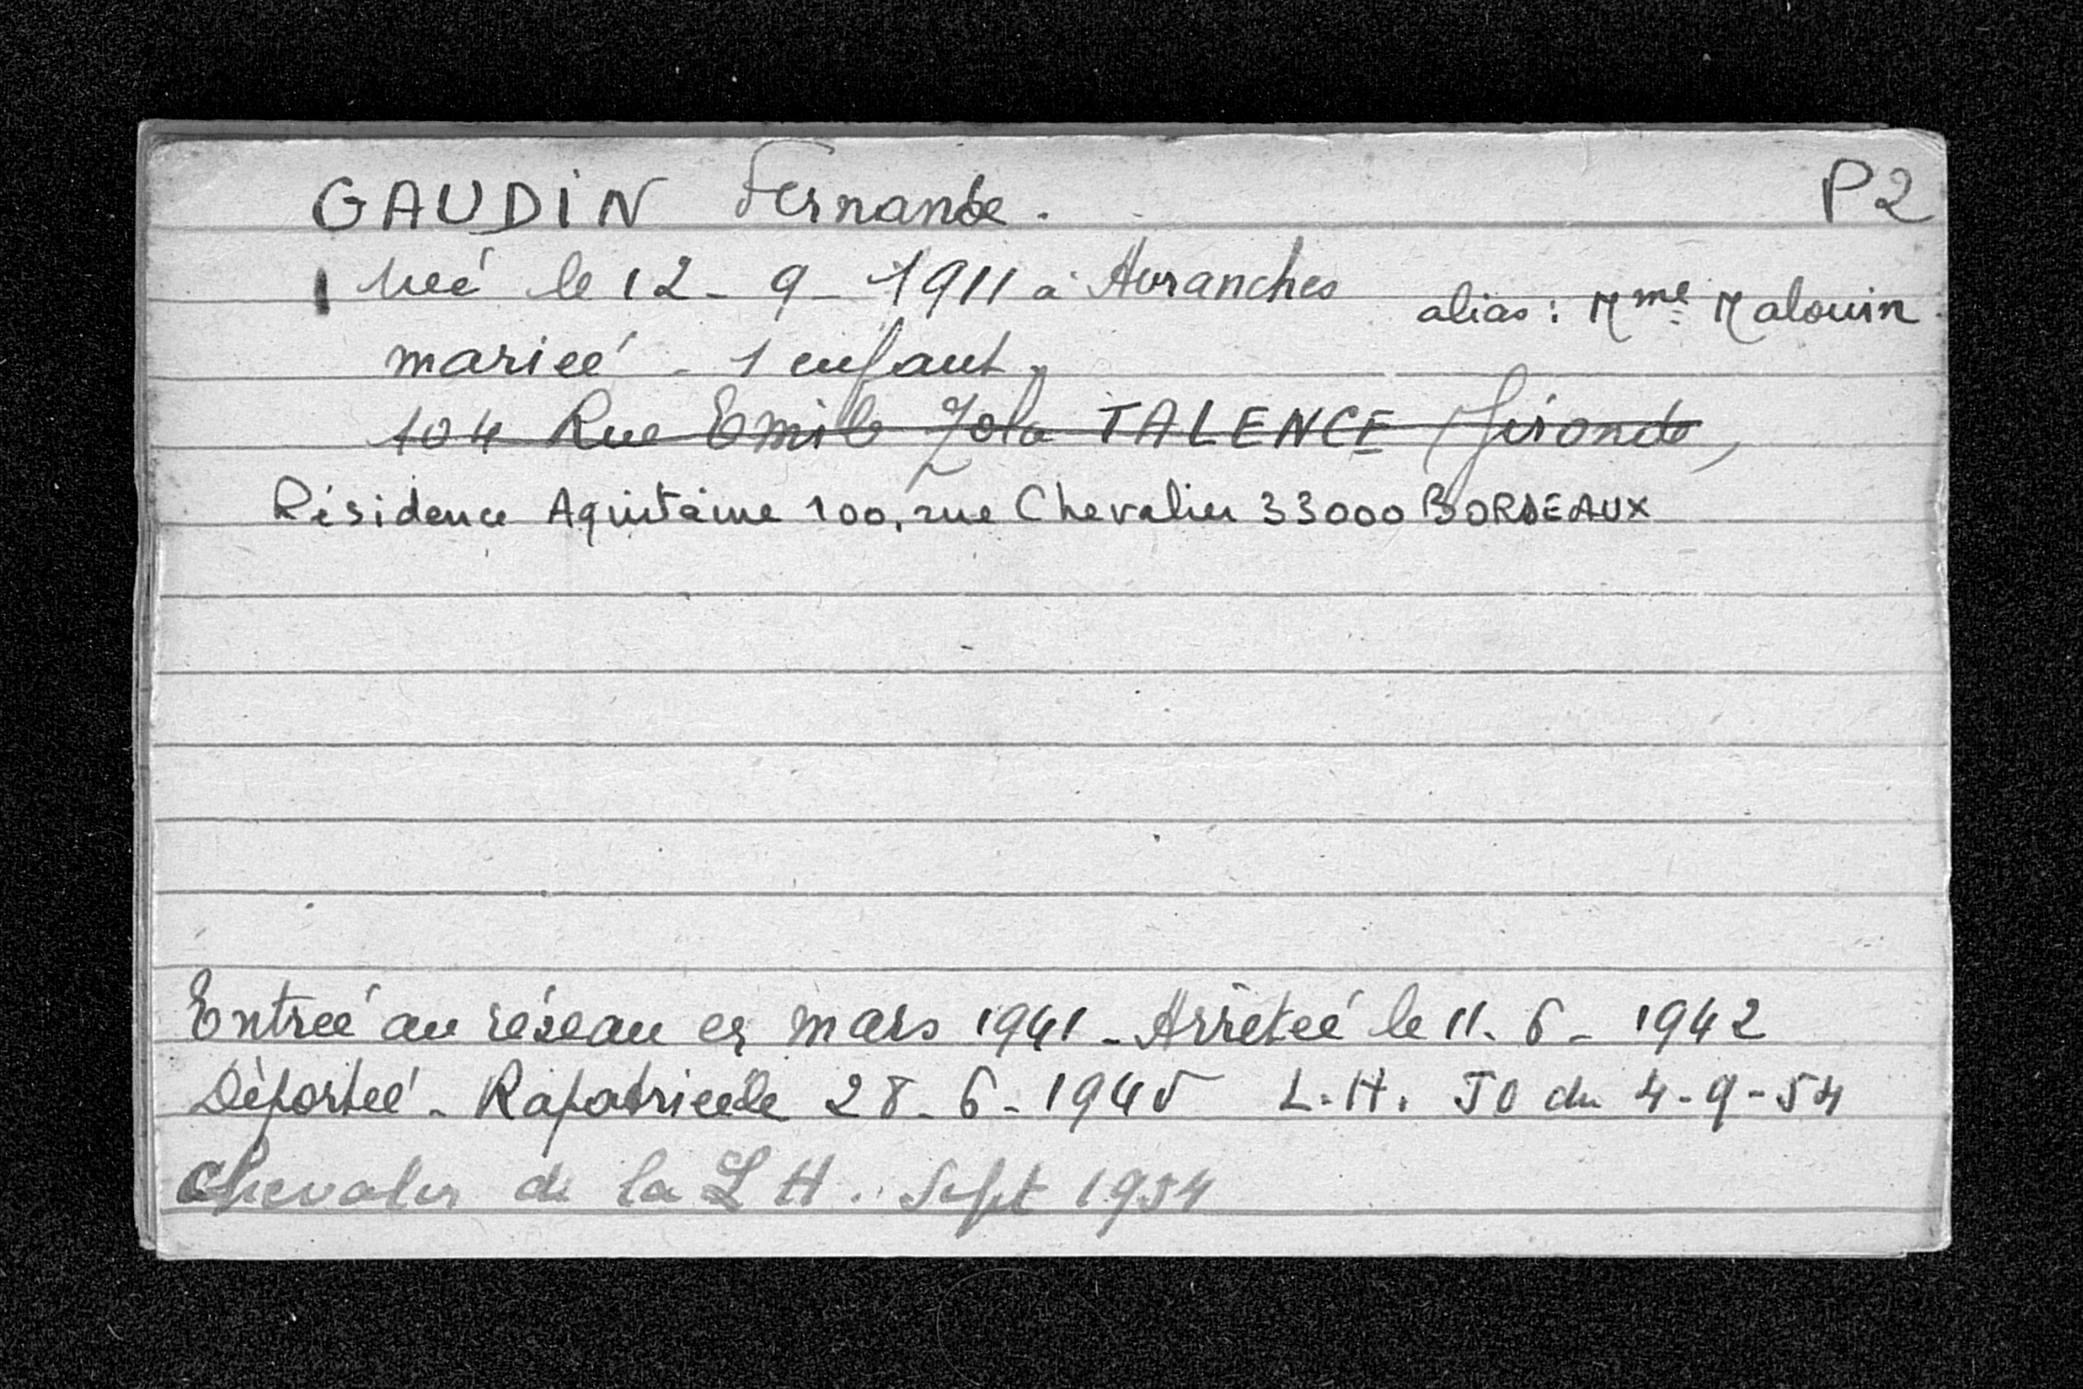 GAUDIN Fernande. P2
Née le 12 - 9 - 1911 à Avranches
alias : Mme Malouin
mariée - 1 enfant
104 Rue Emile Zola TALENCE Gironde
Résidence Aquitaine 100, rue Chevalier 33000 BORDEAUX
Entrée au réseau en mars 1941 - Arrêtée le 11 - 6 - 1942
Déportée - Rapatriée le 28 - 6 - 1945 L.H. JO du 4-9-54
Chevalier de la L H. Sept 1954